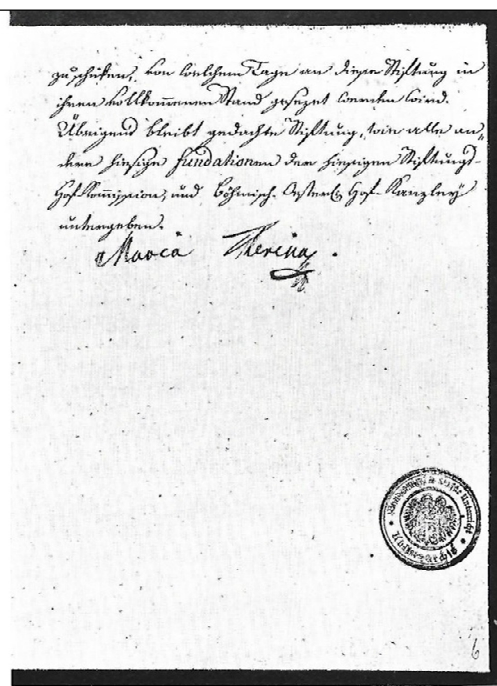 zu schiken, von welchem Tage an diese Stiftung in
ihren vollkommenen Stand gesezet werden wird.
Übrigens bleibt gedachte Stiftung, wie alle an„
dere hiesige Fundationen der hiesigen Stiftungs-
Hof-Kommission, und Böhmisch-Oesterl Hof-Kanzley
untergeben.
Maria Theresia
6